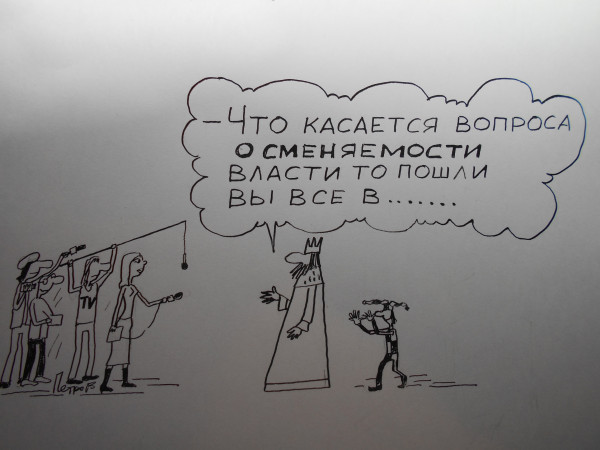 – ЧТО КАСАЕТСЯ ВОПРОСА
О СМЕНЯЕМОСТИ
ВЛАСТИ ТО ПОШЛИ
ВЫ ВСЕ В.......
TV